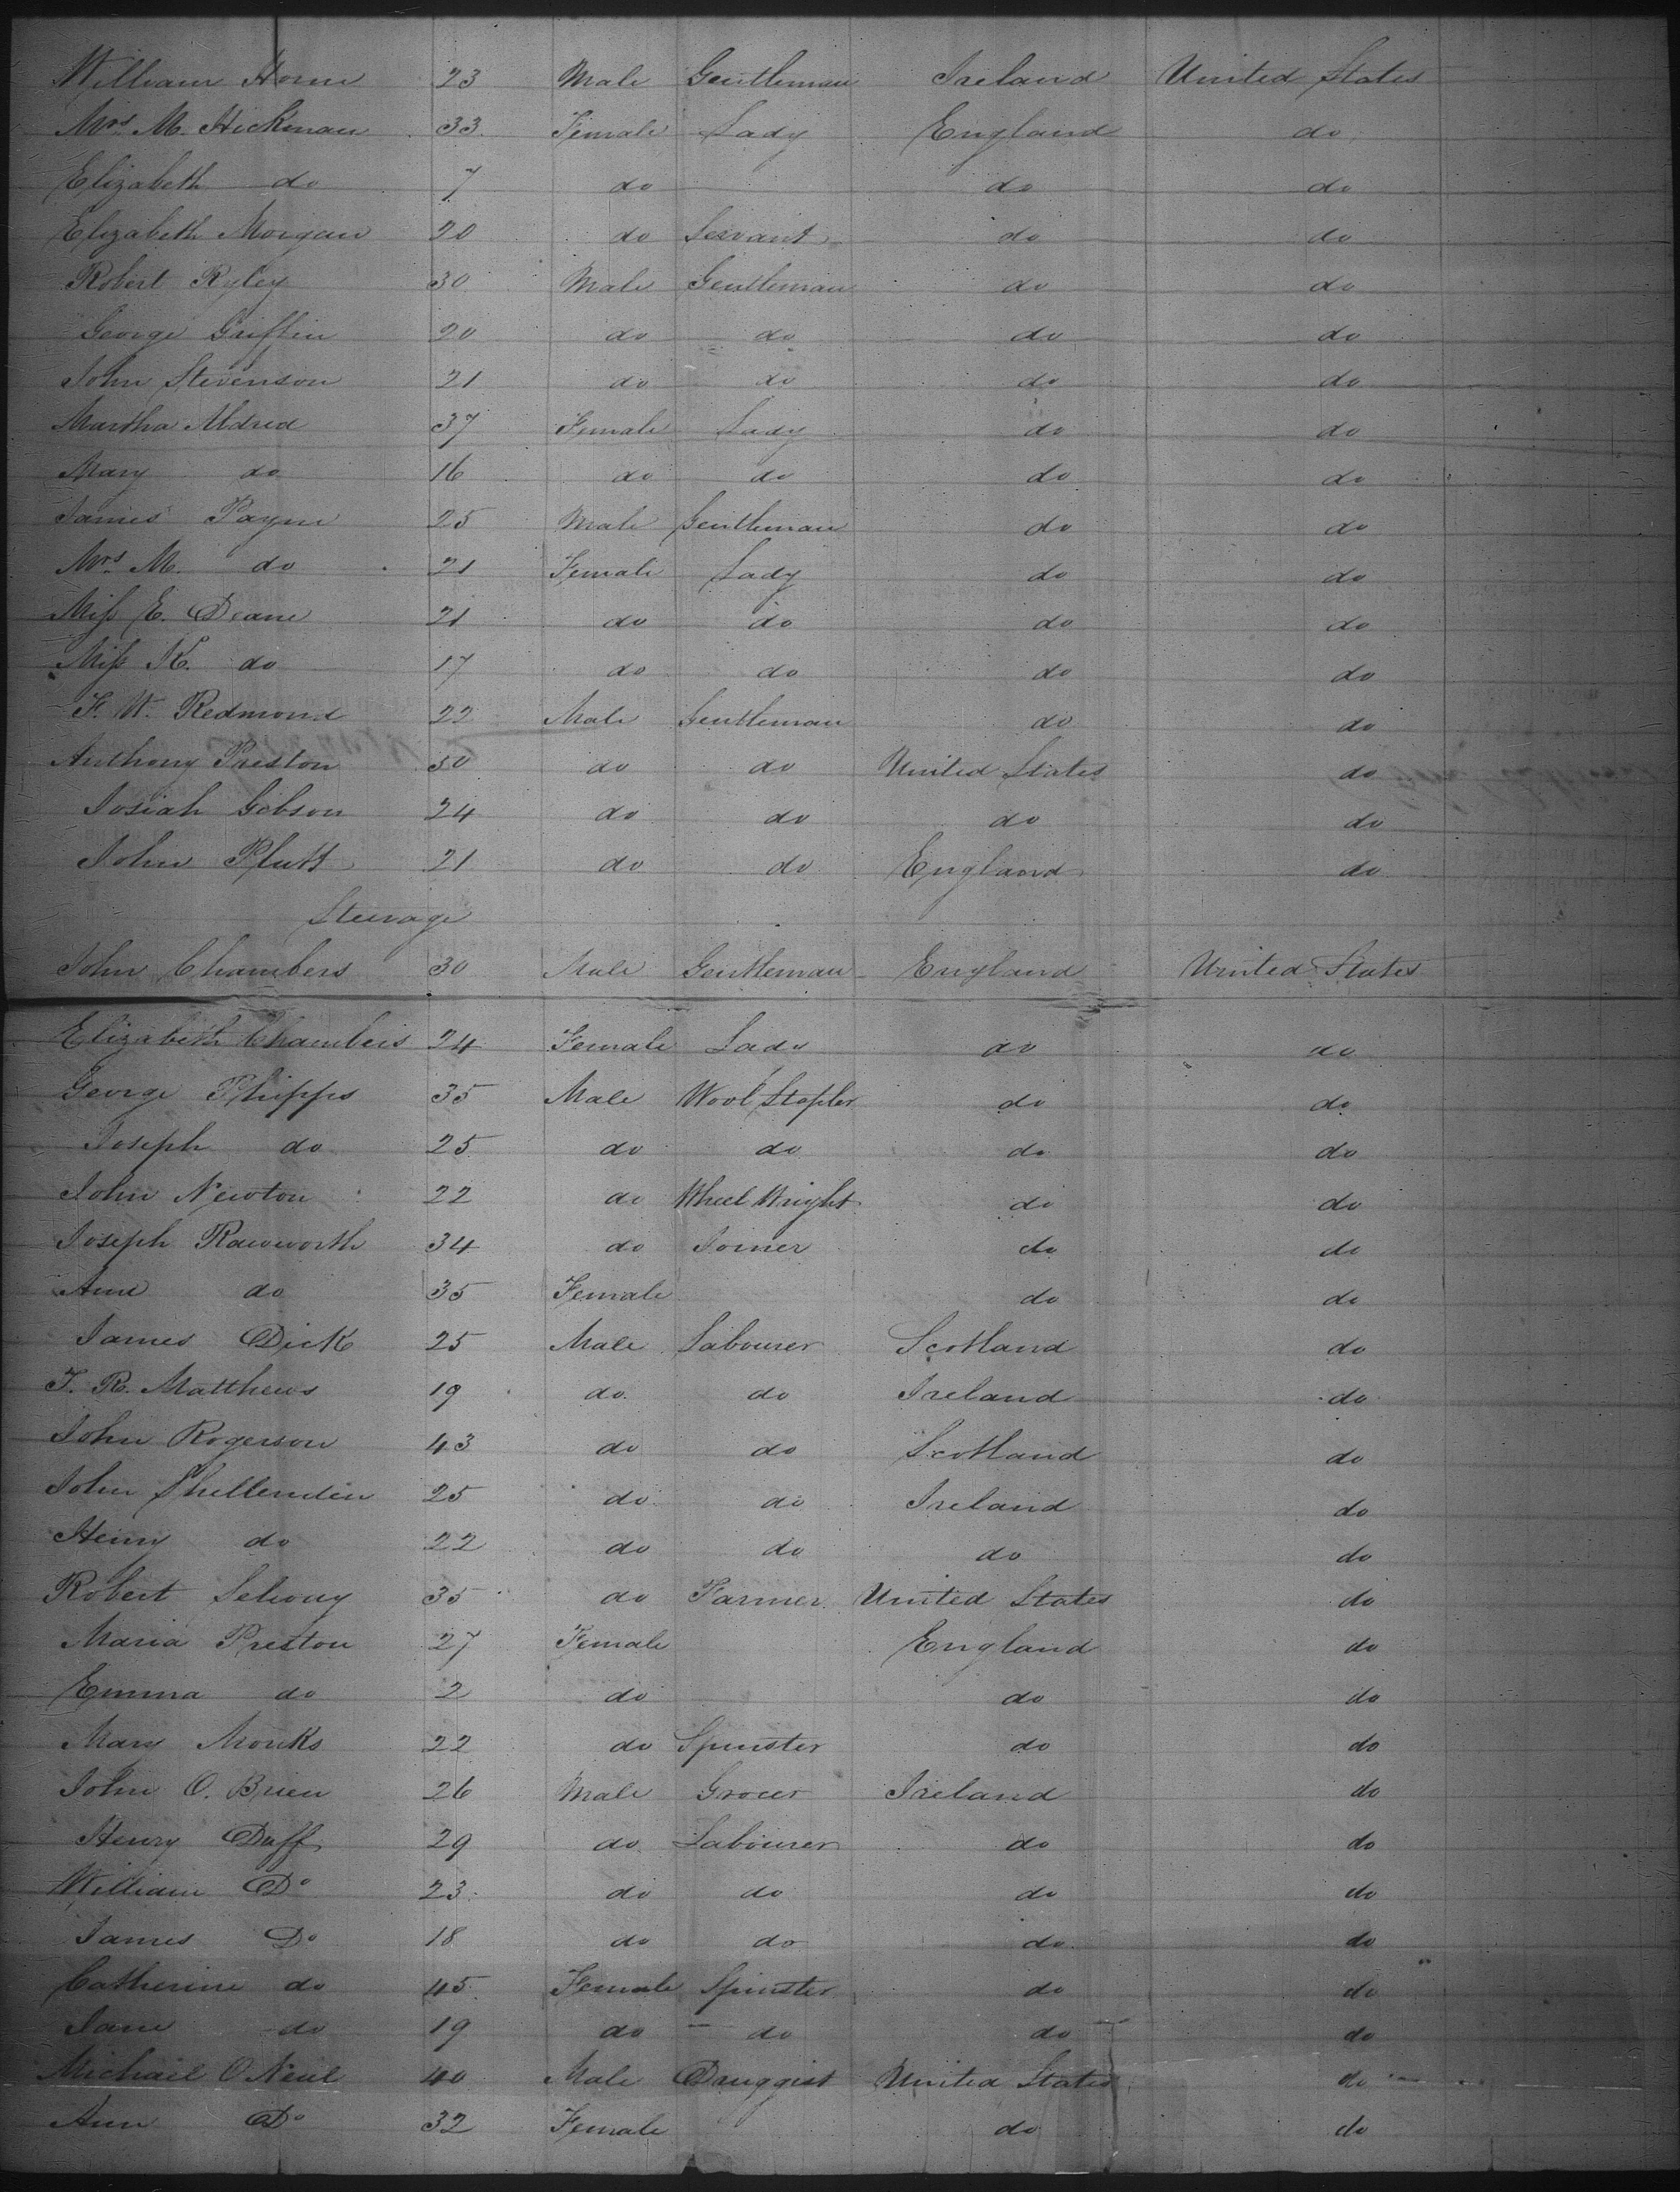 William Horne 23 Male Gentleman Ireland United States
Mrs M. Hickman 33 Female Lady England do
Elizabeth do 7 do do do
Elizabeth Morgan 20 do Servant do do
Robert Ryley 30 Male Gentleman do do
George Griffin 20 do do do do
John Stevenson 21 do do do do
Martha Aldred 37 Female Lady do do
Mary do 16 do do do do
James Payne 25 Male Gentleman do do
Mrs M. do 21 Female Lady do do
Miss E. Deane 21 do do do do
Miss K. do 17 do do do do
F. W. Redmond 22 Male Gentleman do do
Anthony Preston 50 do do United States do
Josiah Gibson 24 do do do do
John 21 do do England do
Steerage
John Chambers 30 Male Gentleman England United States
Elizabeth Chambers 24 Female Lady do do
George Phipps 35 Male Wool Stapler do do
Joseph do 25 do do do do
John Newton 22 do Wheel Wright do do
Joseph Raworth 34 do Joiner do do
Ann do 35 Female do do
James Dick 25 Male Labourer Scotland do
T. R. Matthews 19 do do Ireland do
John Rogerson 43 do do Scotland do
John 25 do do Ireland do
Henry do 22 do do do do
Robert 35 do Farmer United States do
Maria Preston 27 Female England do
Emma do 2 do do do
Mary Monks 22 do Spinster do do
John O. Brien 26 Male Grocer Ireland do
Henry Duff 29 do Labourer do do
William Do 23 do do do do
James Do 18 do do do do
Catherine do 45 Female Spinster do do
Jane do 19 do do do do
Michael O Neil 40 Male Druggist United States do
Ann Do 32 Female do do